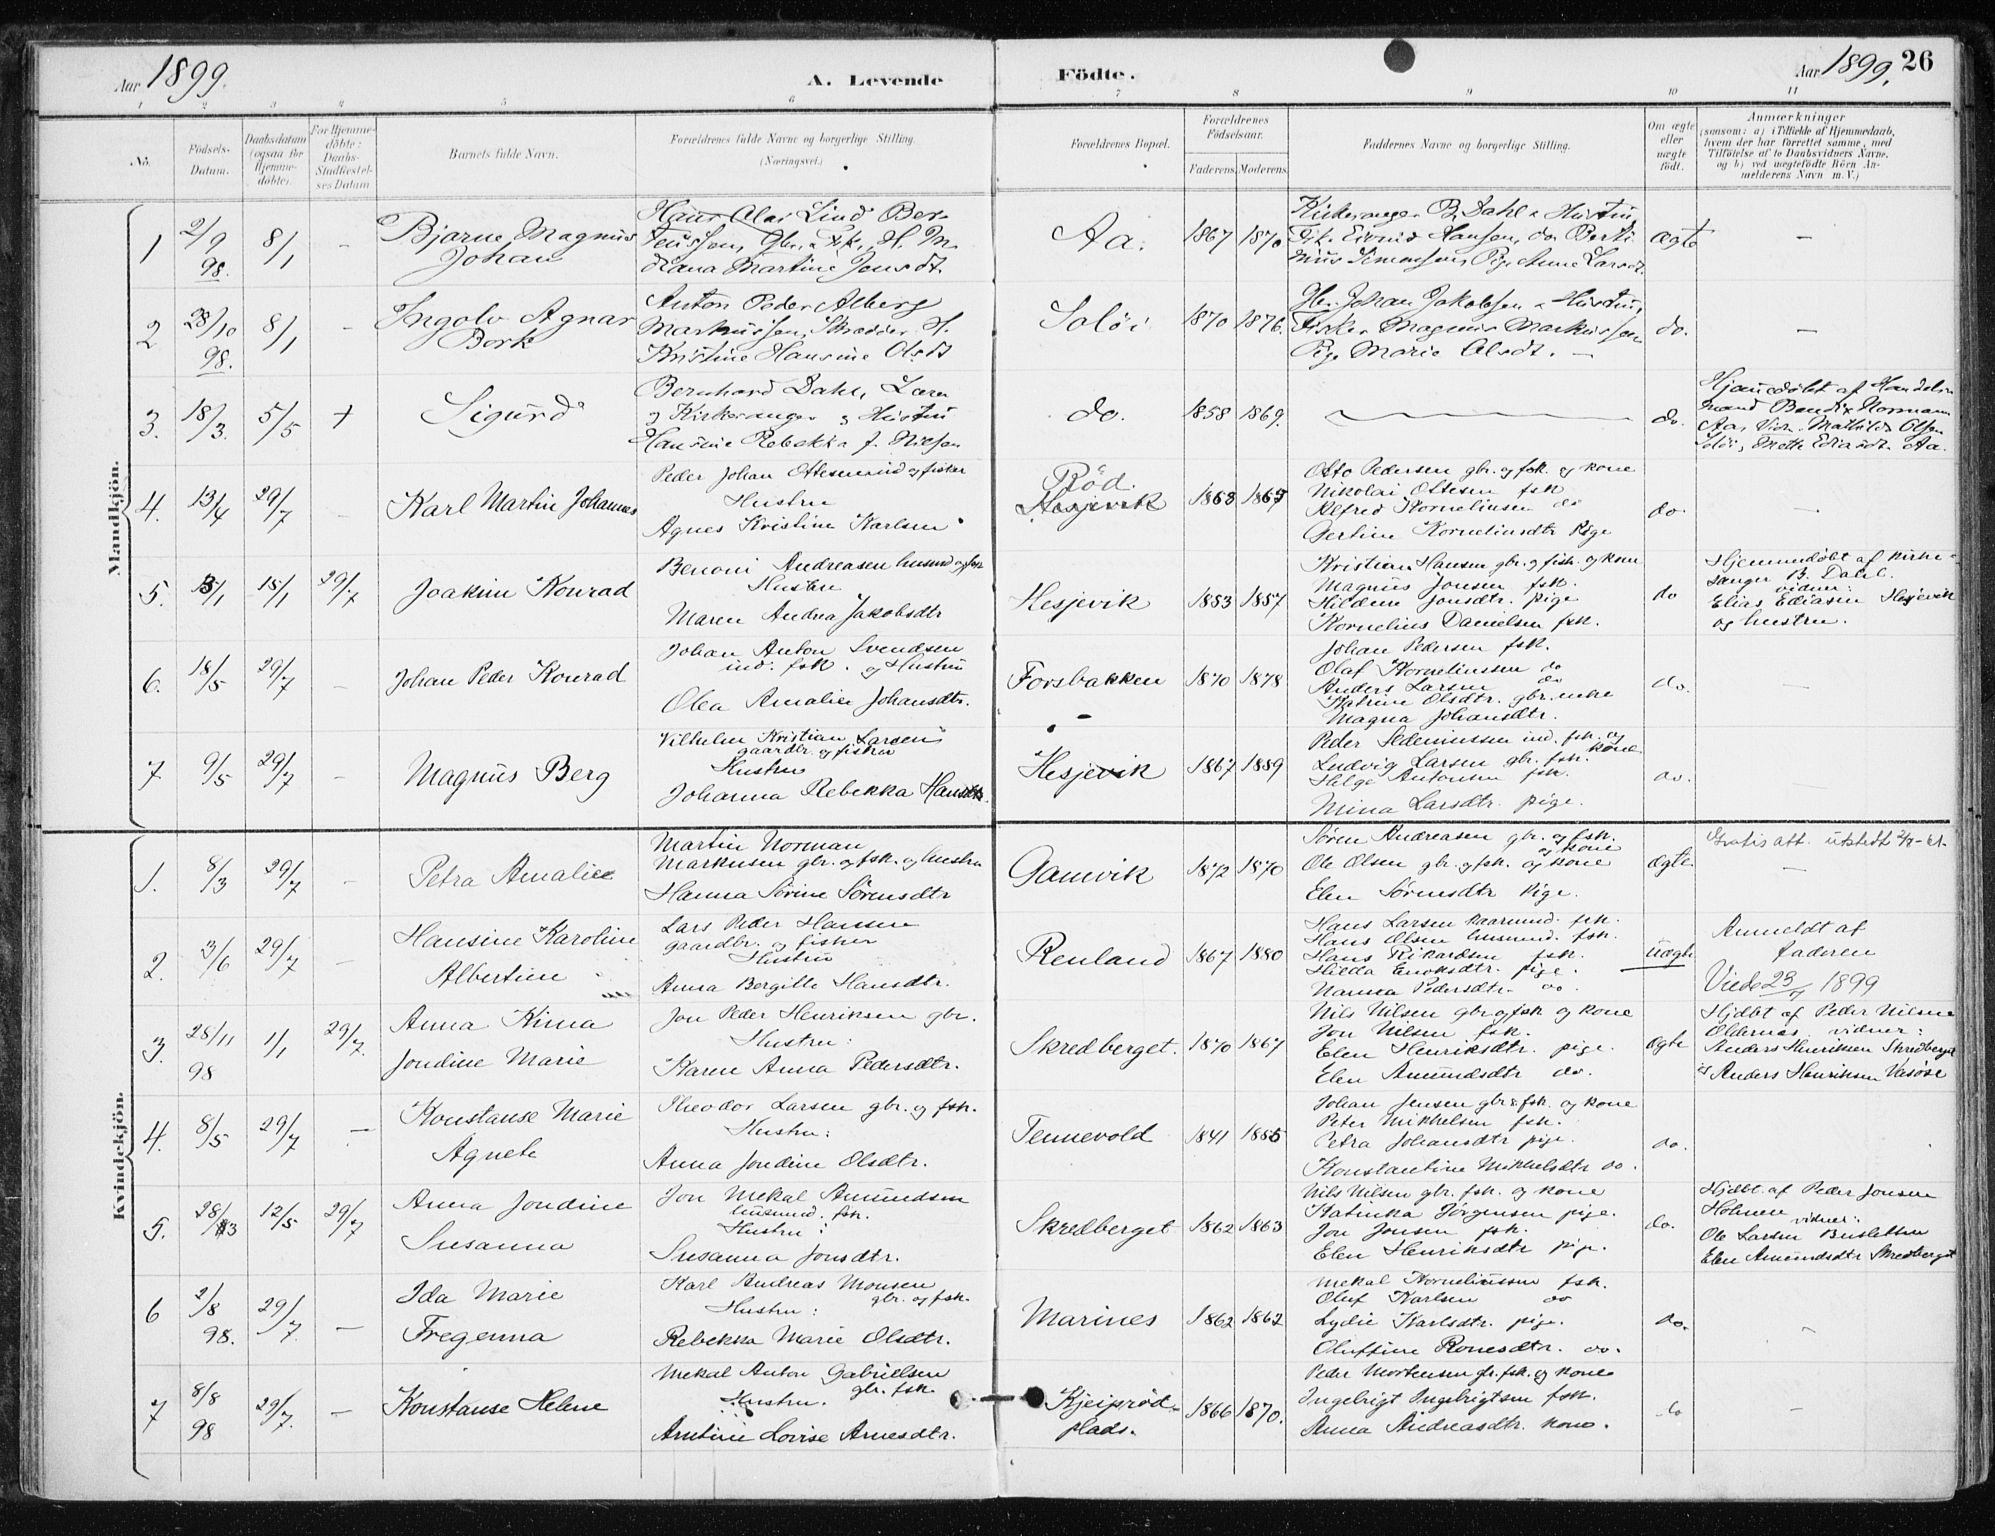 Aar 1899.
A. Levende Fødte.
Aar 1899. 26
1 2 3 4 5 6 7 8 9 10 11
No.
Fødsels-Datum.
Daabsdatum (ogsaa for Hjemmedøbte).
For Hjemmedøbte: Daabs-Stadfæstelses Datum
Barnets fulde Navn.
Forældrenes fulde Navne og borgerlige Stilling. (Næringsvei.)
Forældrenes Bopæl.
Forældrenes Fødselsaar.
Faderens. Moderens.
Faddernes Navne og borgerlige Stilling.
Om ægte eller uægte født.
Anmærkninger
(saasom: a) i Tilfælde af Hjemmedaab, hvem der har forrettet samme, med Tilføielse af to Daabsvidners Navne, og b) ved uægtefødte Børn Anmelderens Navn m. V.)
Mandkjön.
1 2/9 98. 8/1 -
Bjarne Magnus
Johan
Hans Olai Lind Ber-
teussen, Gbr. & Fsk., H. M.
diana Martine Jensdt.
Aa. 1867 1870
Kirkesanger B. Dahl & Hustru,
Fisk. Eivind Hansen, do Berti-
nius Simonsen, Pige Anne Larsdt.
ægte -
2 28/10 98. 8/1 -
Ingolv Agnar
Bork
Anton Peder Alberg
Markussen, Skrædder, H.
Kristine Hansine Olsdt
Soløi 1870 1876.
Hr. Johan Jakobsen & Hustru,
Fisker Magnus Markussen
Pige Marie Olsdt. -
do. -
3. 18/3. 5/5 +
Sigurd
Bernhard Dahl, Lærer
og Kirkesanger og Hustru
Hansine Rebekka f. Nilsen
do. 1858 1869.
do.
Hjemmedøbt af Handels-
mand Bendix Normann
Aa, Vidn. Mathilde Olsen
Soløi, Mette Ediasdt. Aa.
4. 13/4 29/7 -
Karl Martin Johannes
Peder Johan Ottesen ind og fisker
Hustru
Agnes Kristine Karlsen
Rød
Hesjevik 1863 1867
Otto Pedersen gbr. og fsk. og kone
Nikolai Ottesen fsk
Alfred Kornelinsen do
Gertine Kornelinsdtr Pige
do. -
5. 3/1 15/1 29/7
Joakim Konrad
Benoni Andreasen husmd og fsk
Hustru
Maren Andrea Jakobsdtr
Hesjevik 1853 1857
Kristian Hansen gbr. og fisk. og kone
Magnus Jonsen fsk.
Hildine Jonsdtr. pige
Kornelius Danielsen fsk.
do
Hjemmedøbt af kirke-
sanger B. Dahl.
vidner:
Elias Ediasen Hesjevik
og hustru.
6. 18/5 29/7 -
Johan Peder Konrad
Johan Anton Svendsen
ind. fsk. og Hustru
Olea Amalie Johansdtr.
Forsbakken 1870 1878
Johan Pedersen fsk.
Olaf Kornelinssen do
Anders Larsen do
Katrine Olsdtr. gbr. enke
Magna Johansdtr.
do. -
7 9/5 29/7 -
Magnus Berg
Vilhelm Kristian Larsen
gaardbr. og fisker
Hustru
Johanna Rebekka Hansdtr.
Hesjevik 1867 1889
Peder Sedeniussen ind. fsk. og kone
Ludvig Larsen gbr. fsk.
Helge Antonsen fsk.
Mina Larsdtr. pige.
do. -
Kvindekjön.
1. 8/3 29/7 -
Petra Amalie
Martin Norman
Markusen gbr. og fsk. og hustru
Hanna Sørine Sørensdtr
Gamvik 1872 1870
Søren Andreasen gbr. og fsk.
og kone
Ole Olsen gbr. og fsk. og kone
Elen Sørensdtr Pige.
ægte.
Gratis att. utstedt
-
2. 3/6 29/7 -
Hansine Karoline
Albertine
Lars Peder Hansen
gaardbr. og fisker
Hustru
Anna Bergitte Hansdtr.
Renland 1867 1880
Hans Larsen kaarmd. fsk.
Hans Olsen husmd. fsk.
Hans Rikardsen fsk.
Hilda Enoksdtr. pige.
Nanna Pedersdtr. do.
uægte
Anmeldt af
faderen
Viede 23/7 1899
3. 28/11 98 1/1 29/7.
Anna Kima
Jondine Marie
Jon Peder Henriksen gbr.
Hustru:
Karen Anna Pedersdtr.
Skredberget. 1870 1867
Nils Nilsen gbr. og fsk og kone
Jon Nilsen fsk.
Elen Henriksdtr. pige.
Elen Amundsdtr do.
ægte
Hjdbt af Peder Nilsen
Oldernæs vidner:
Anders Henriksen Skredberget
og Anders Henriksen Vasøse
4. 8/5 29/7 -
Konstanse Marie
Agnete
Theodor Larsen gbr. og fsk.
Hustru:
Anna Jondine Olsdtr.
Tennevold 1841 1855
Johan Jensen gbr & fsk. og kone
Peter Mikkelsen fsk.
Petra Johansdtr pige.
Konstantine Mikkelsdtr do.
do.
5. 28/3 12/5 29/7
Anna Jondine
Susanna
Jon Mekal Amundsen
husmd. fsk.
Hustru:
Susanna Jonsdtr.
Skredberget 1862 1863
Nils Nilsen gbr. fsk. og kone
Katinka Jørgensen pige.
Jon Jonsen fsk.
Elen Henriksdtr pige.
do.
Hjdbt. af Peder Jonsen
Holmen vidner:
Ole Larsen
Elen Amundsdtr Skredberget
6 2/8 98. 29/7. -
Ida Marie
Fregenna
Karl Andreas Monsen
gbr. og fsk.
Hustru:
Rebekka Marie Olsdtr.
Marines 1862 1862
Mekal Kornelinssen fsk.
Oluf Karlsen do
Lydie Karlsdtr. pige.
Oluffine Ronesdtr. do.
do. -
7 8/8 98 29/7. -
Konstanse Helene
Mekal Anton Gabrielsen
gbr. fsk
Hustru.
Arntine Lovise Arnesdtr.
Kjeiprød-
plads. 1866 1870.
Peder Mortensen gbr. fsk. og kone
Ingebrigt Ingebrigtsen fsk.
Anna Andreasdtr. kone.
do -